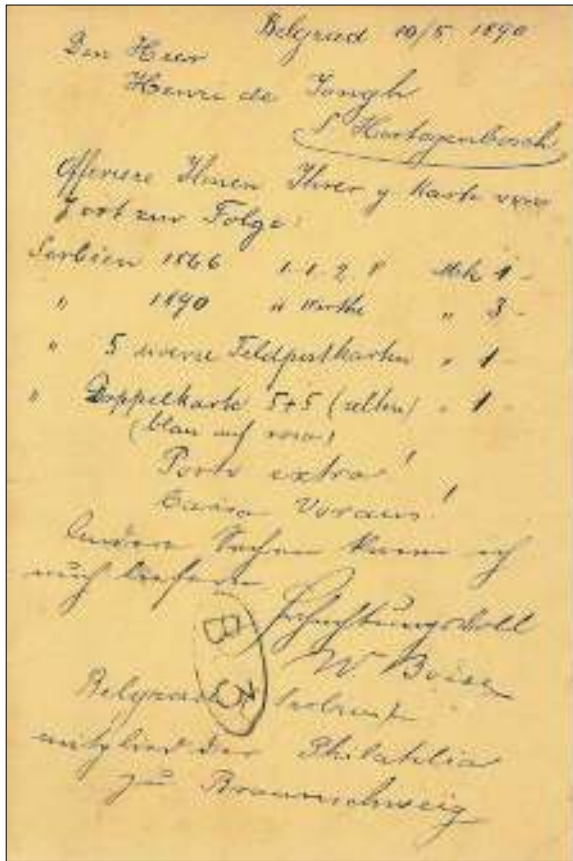 Belgrad 10/5 1890
Den Heer
Henri de Jongh
s'Hertogenbosch
Offeriere Ihnen Ihrer g Karte vom
zur Folge:
Serbien 1866 1. 1. 2. Mrk 1-
" 1890 Werthe " 3-
" 5 diverse Feldpostkarten " 1-
" Doppelkarte 5+5 (selten) " 1-
(blau auf rosa)
Porto extra!
Cassa Voraus!
Andere Sachen kann ich
auch liefern
Achtungsvoll
W
B
3
Belgrad
mitglied der Philatelia
zu Braunschweig